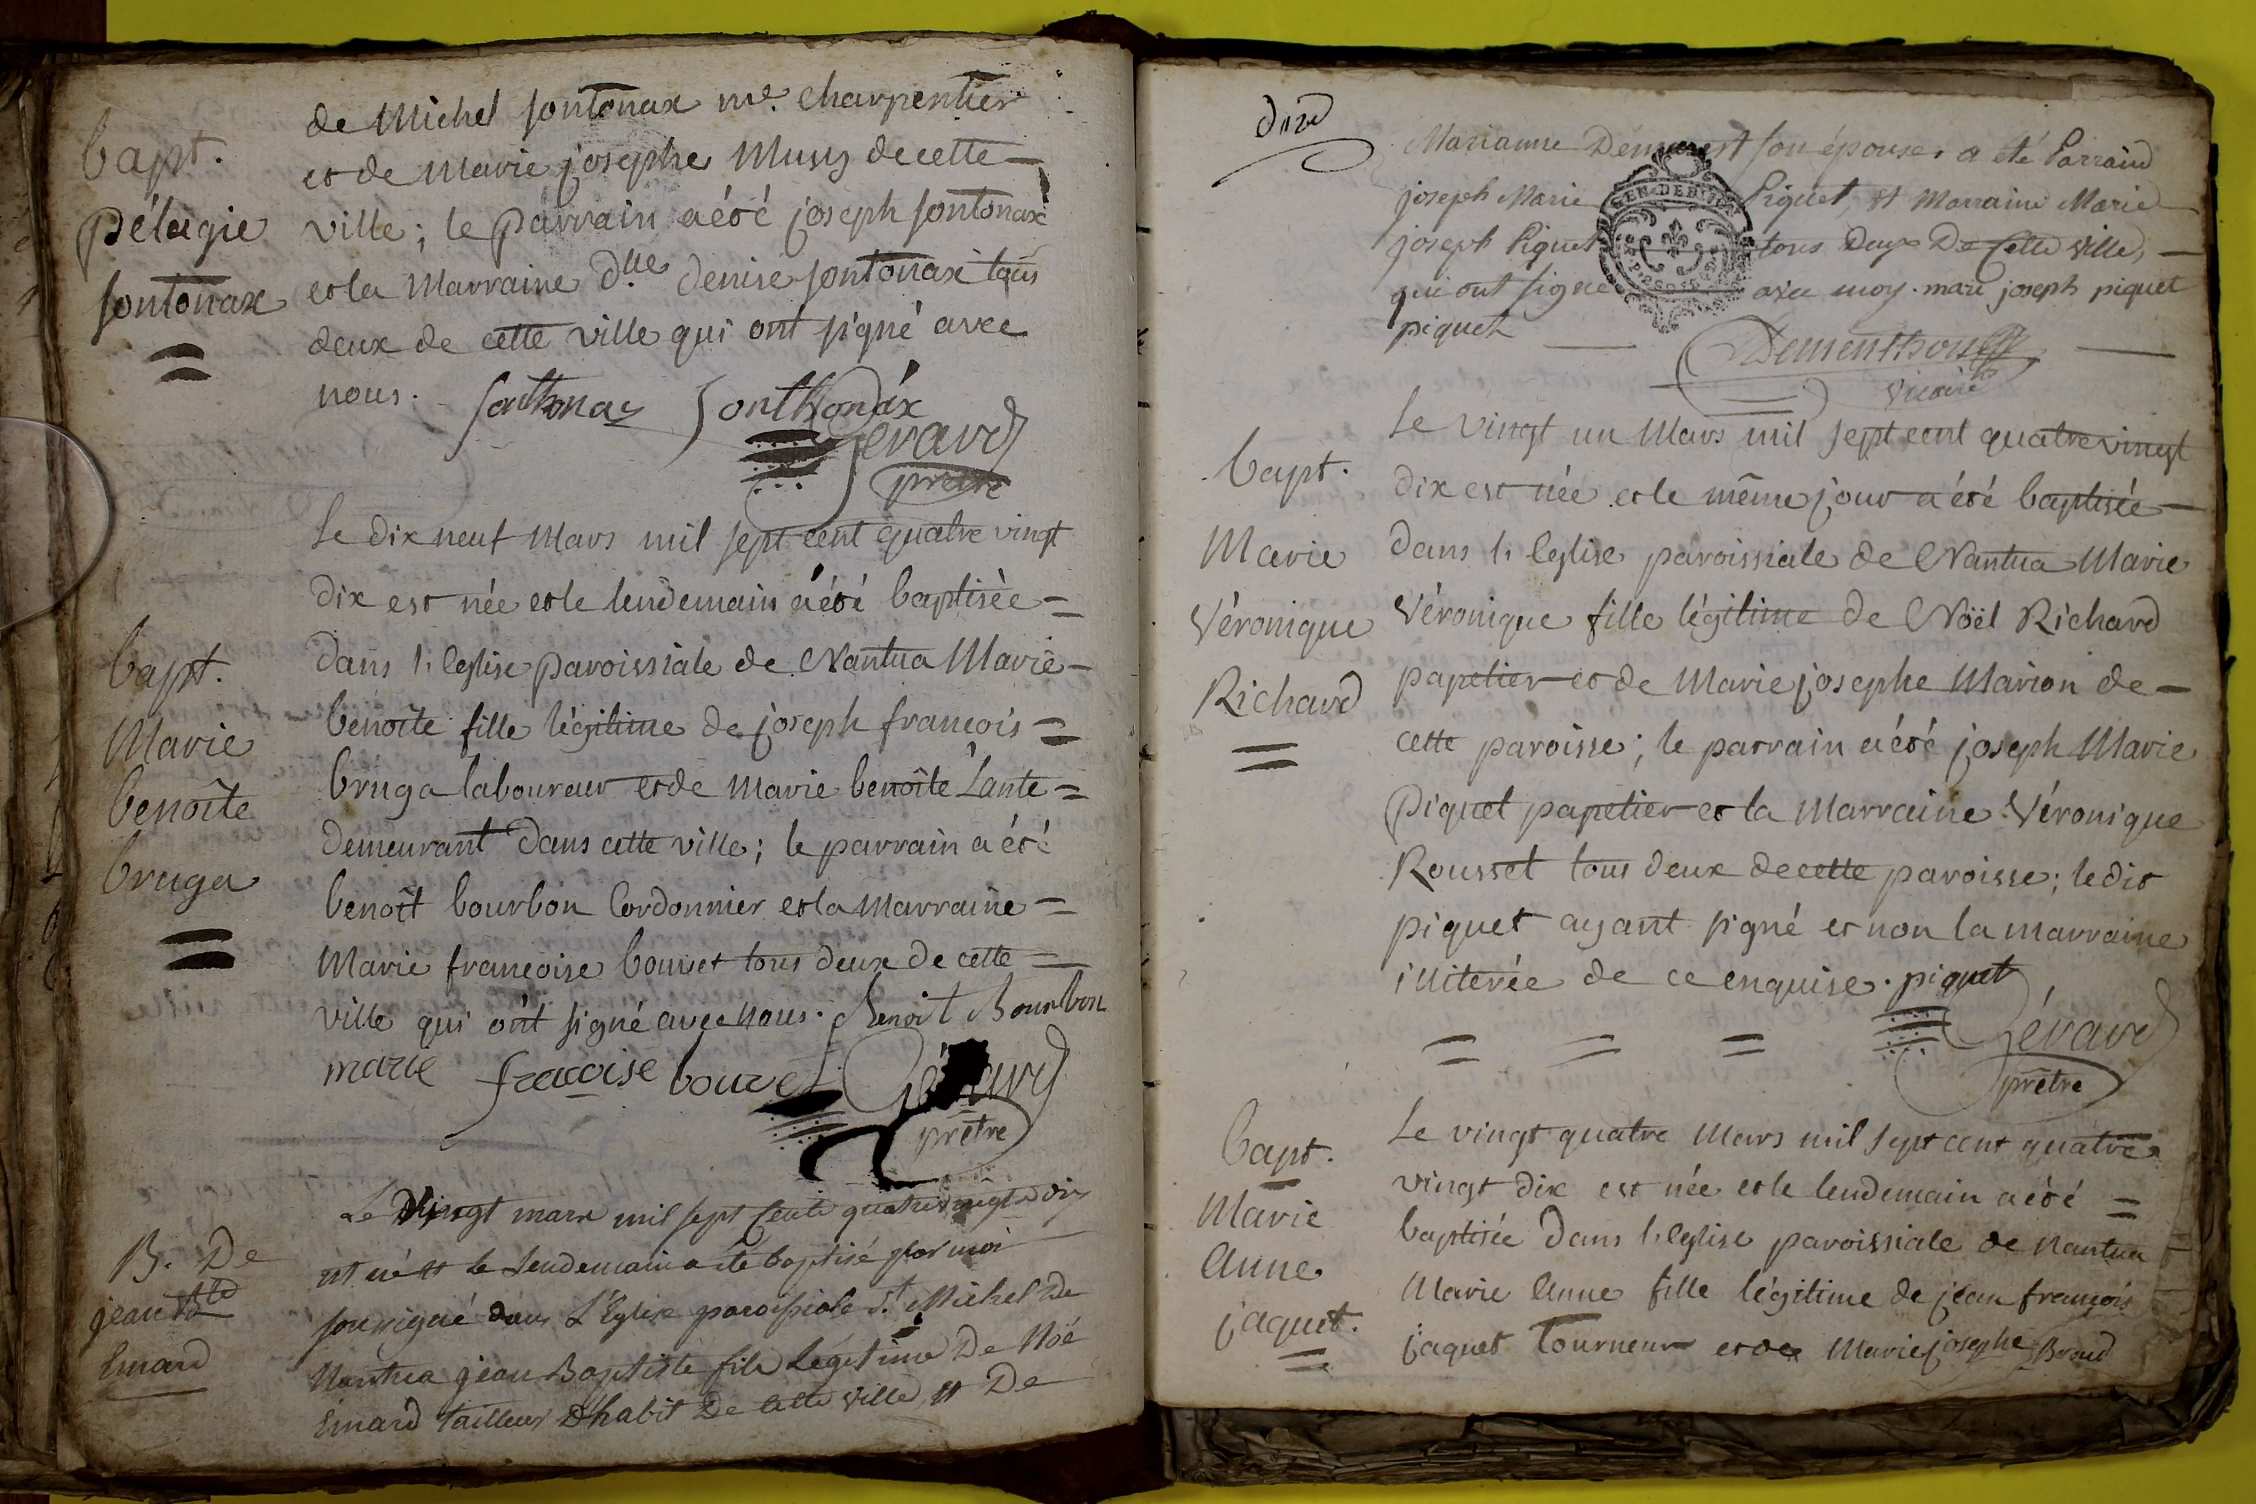 bapt.
Pélagie
sontonax
de Michel sontonax me. charpentier
et de Marie josephe Musy de cette
ville; le parrain a été joseph sontonax
et la Marraine dlle denise sontonax tous
deux de cette ville qui ont signé avec
nous. sonthonax sonthonáx
Gérard
prêtre
bapt.
Marie
benoîte
bruga
Le dix neuf Mars mil sept cent quatre vingt
dix est née et le lendemain a été baptisée
dans l'eglise paroissiale de Nantua Marie
benoîte fille légitime de joseph françois
bruga laboureur et de Marie benoîte Lante
demeurant dans cette ville; le parrain a été
benoît bourbon Cordonnier et la Marraine
Marie françoise bouvet tous deux de cette
ville qui ont signé avec nous. Benoit Bourbon
marie fracoise bouvet Gérard
prêtre
B. De
jean Bte
Emard
Le vingt mars mil sept cent quatre vingt dix
est né et le lendemain a été baptisé par moi
soussigné dans L'Eglise paroissiale St. Michel De
Nantua jean Baptiste fils Legitime De Noé
Emard tailleur D'habit De cette ville, et De
Marianne son épouse, a été Parrain
joseph Marie Piquet, et Marraine Marie
joseph Piquet tous Deux De Cette Ville,
qui ont signé avec moy. marie joseph piquet
piquet
GEN. DE DIJON
Dementhon
vicaire
bapt.
Marie
Véronique
Richard
Le vingt un Mars mil sept cent quatre vingt
dix est née et le même jour a été baptisée
dans l'eglise paroissiale de Nantua Marie
Véronique fille légitime de Noël Richard
papetier et de Marie josephe Marion de
cette paroisse; le parrain a été joseph Marie
Piquet papetier et la Marraine Véronique
Rousset tous deux de cette paroisse; ledit
piquet ayant signé et non la marraine
illiterée de ce enquise. piquet
Gérard
prêtre
bapt.
Marie
Anne
jaquet.
Le vingt quatre Mars mil sept cent quatre
vingt dix est née et le lendemain a été
baptisée dans l'eglise paroissiale de Nantua
Marie Anne fille légitime de jean françois
jaquet Tourneur et de Marie josephe